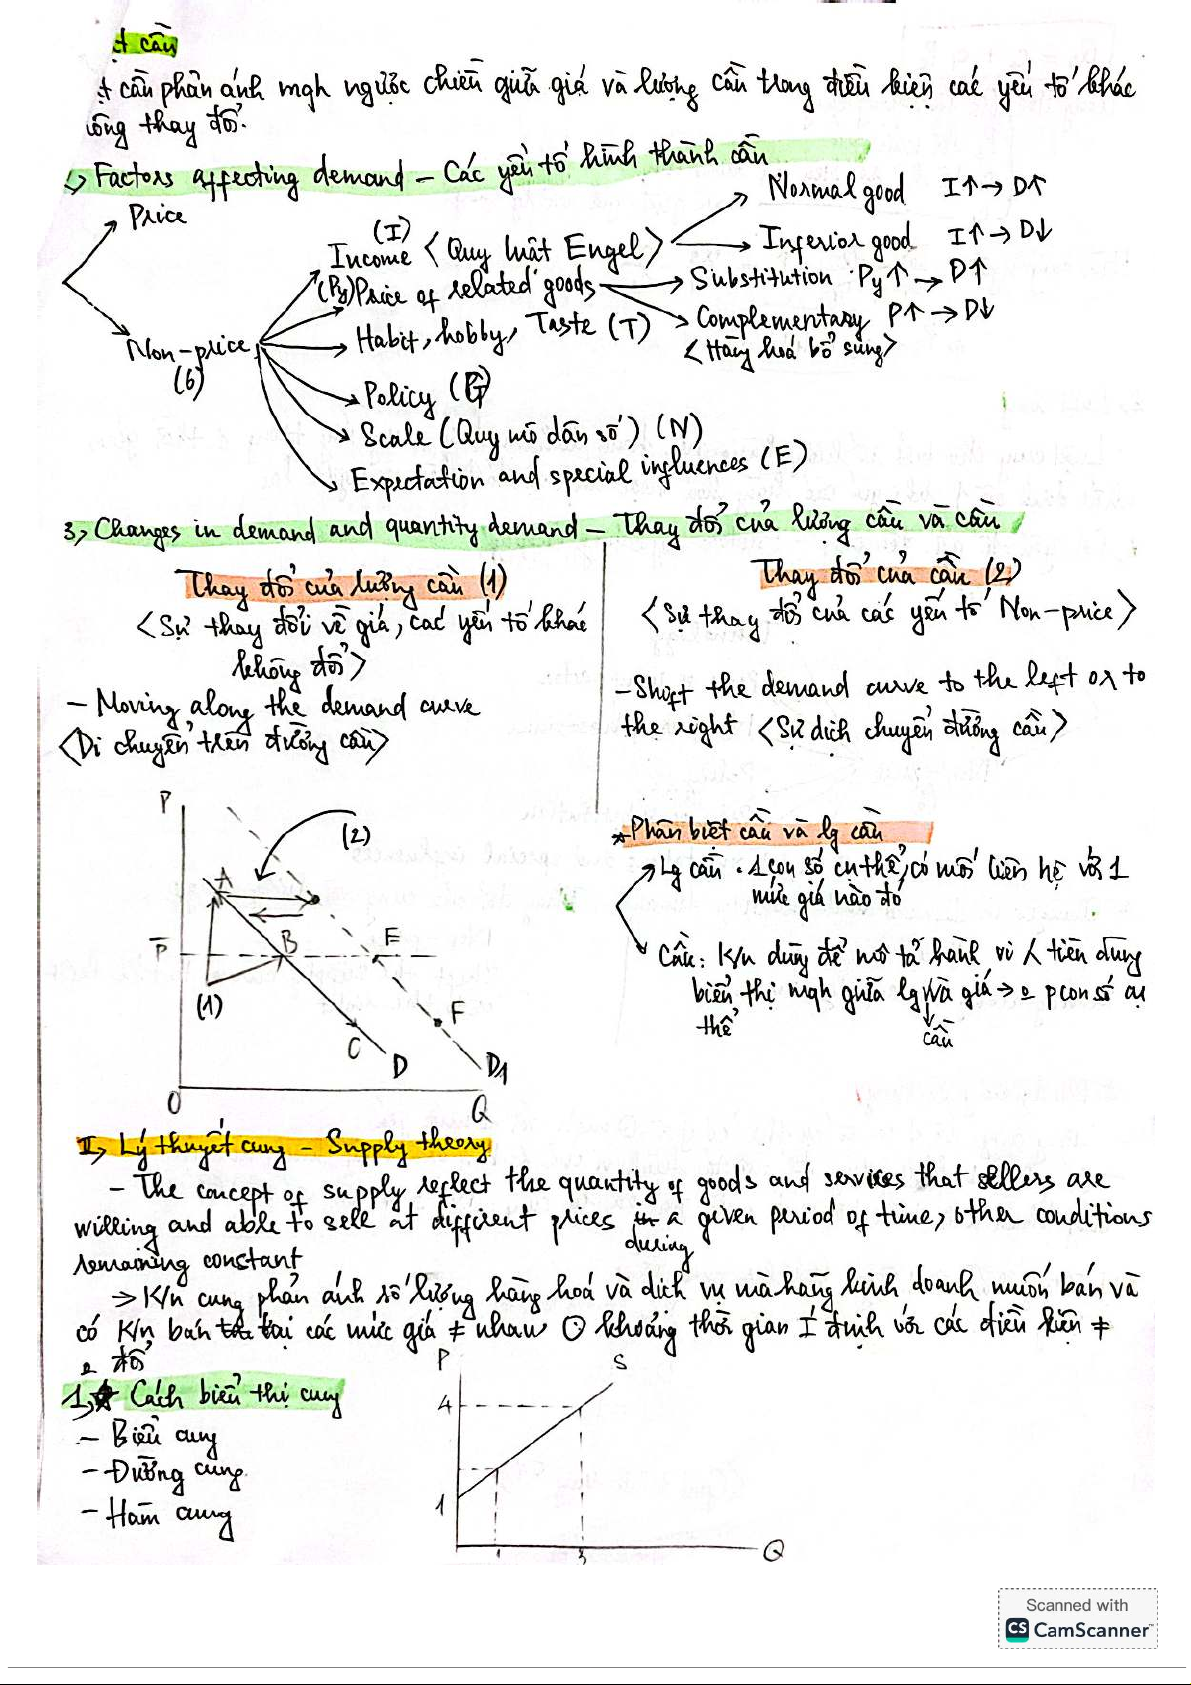 t cầu
t cầu phản ánh mqh ngược chiều giữa giá và lượng cầu trong điều kiện các yếu tố khác
ông thay đổi.
Factors affecting demand – Các yếu tố hình thành cầu
Price
Normal good I↑→ D↑
(I)
Income <Quy luật Engel>
Inferior good I↑→ D↓
(Py) Price of related goods
Substitution Py↑ → D↑
Habit, hobby, Taste (T)
Complementary P↑ → D↓
<Hàng hoá bổ sung>
Non-price
(6)
Policy (G)
Scale (Quy mô dân số) (N)
Expectation and special influences (E)
3, Changes in demand and quantity demand – Thay đổi của lượng cầu và cầu
Thay đổi của lượng cầu (1)
<Sự thay đổi về giá, các yếu tố khác
không đổi>
- Moving along the demand curve
<Di chuyển trên đường cầu>
Thay đổi của cầu (2)
<Sự thay đổi của các yếu tố Non-price>
- Shift the demand curve to the left or to
the right <Sự dịch chuyển đường cầu>
P
(2)
A
P̅
B
E
(1)
F
C
D
D1
O
Q
* Phân biệt cầu và lg cầu
Lg cầu . 1 con số cụ thể, có mối liên hệ với 1
mức giá nào đó
Cầu: K/n dùng để mô tả hành vi tiêu dùng
biểu thị mqh giữa lg và giá → p con số cụ
thể
cầu
II, Lý thuyết cung – Supply theory
- The concept of supply reflect the quantity of goods and services that sellers are
willing and able to sell at different prices in a given period of time, other conditions
during
remaining constant
⇒ K/n cung phản ánh số lượng hàng hoá và dịch vụ mà hãng kinh doanh muốn bán và
có K/n bán tại các mức giá ≠ nhau khoảng thời gian I định với các điều kiện ≠
đổi
1, * Cách biểu thị cung
- Biểu cung
- Đường cung
- Hàm cung
P
S
4
1
1
3
Q
Scanned with
CS CamScanner